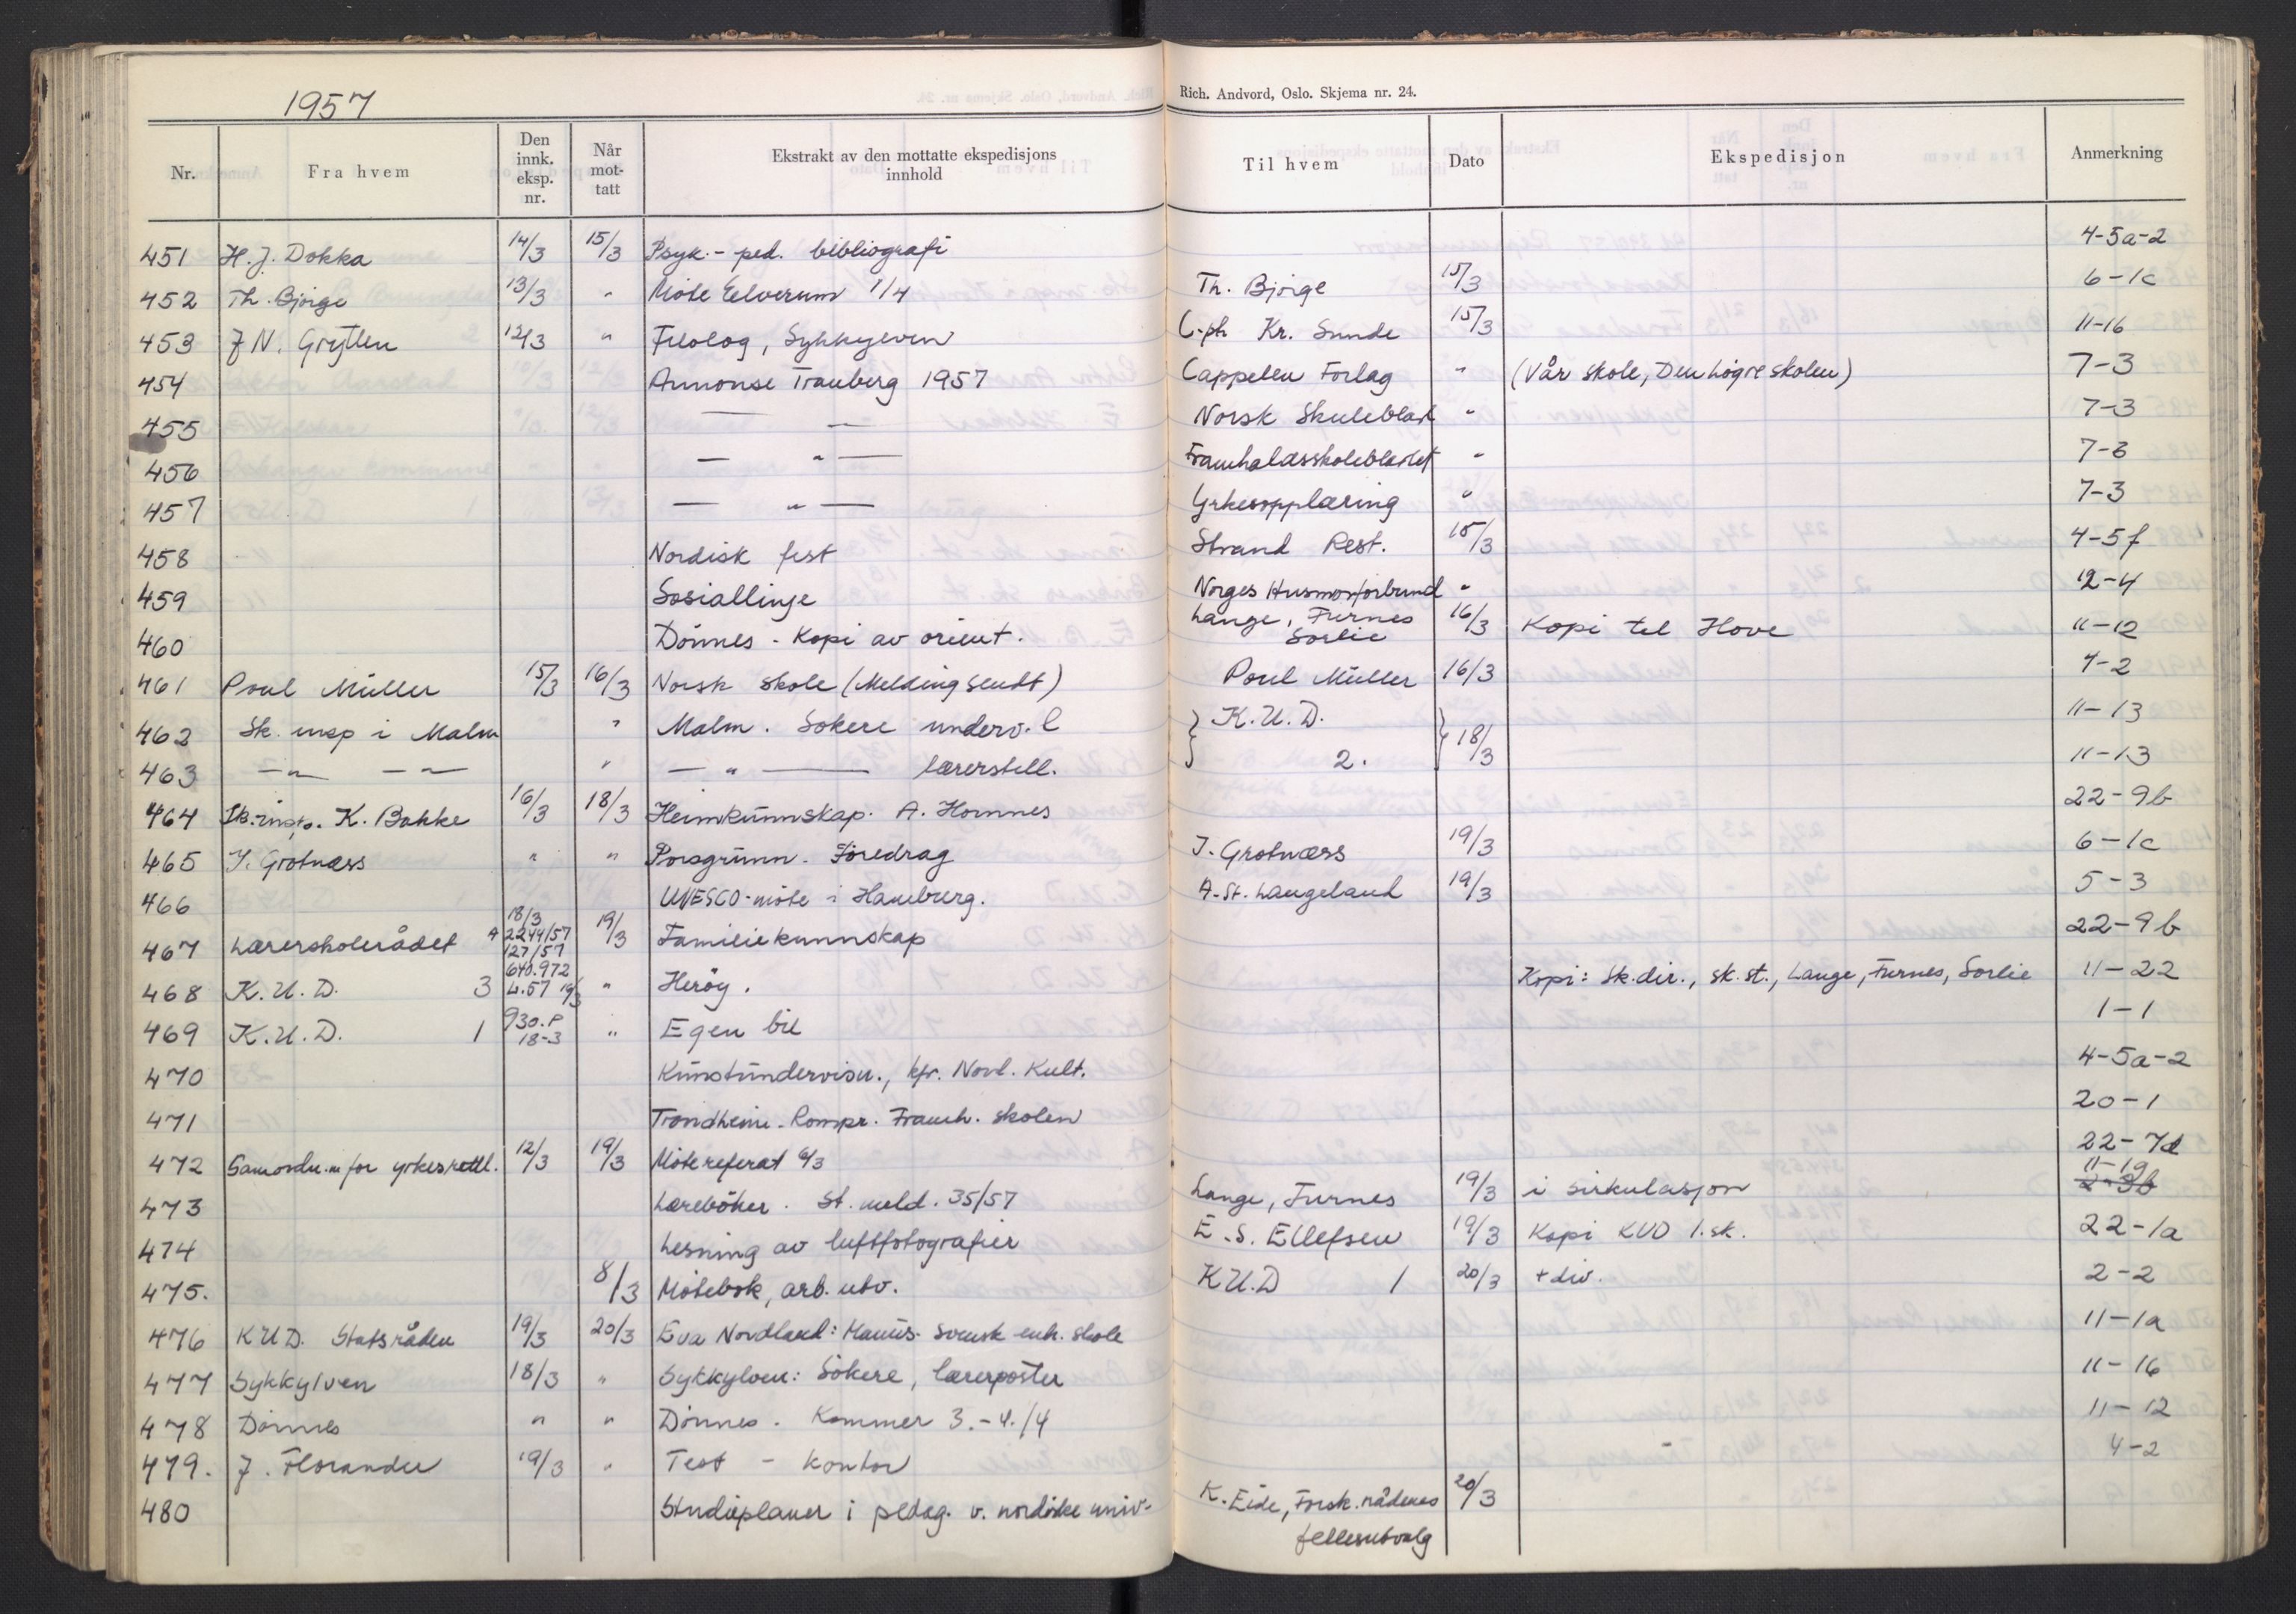 1957
Rich. Andvord, Oslo. Skjema nr. 24.
Nr. Fra hvem Den innk. eksp. nr. Når mot-tatt Ekstrakt av den mottatte ekspedisjons innhold Til hvem Dato Ekspedisjon Anmerkning
451 H. J. Dokka 14/3 15/3 Psyk.- ped. bibliografi 4-5a-2
452 Th. Bjørge 13/3 " Møte Elverum 1/4 Th. Bjørge 15/3 6-1c
453 J N. Grytten 12/3 " Filolog, Sykkylven C.ph Kr. Sunde 15/3 11-16
454 Annonse Tranberg 1957 Cappelen Forlag " (Vår skole, Den høgre skolen) 7-3
455 — " — Norsk Skuleblad " 7-3
456 — " — Framhaldsskolebladet " 7-3
457 — " — Yrkesopplæring " 7-3
458 Nordisk fest Strand Rest. 15/3 4-5f
459 Sosiallinje Norges Husmorforbund " 12-4
460 Dönnes - Kopi av orient. Lange, Furnes Sørlie 16/3 Kopi til Hove 11-12
461 Poul Müller 15/3 16/3 Norsk skole (Melding sendt) Poul Müller 16/3 4-2
462 Sk. insp i Malm " Malm. Søkere underv. l } K.U.D. } 18/3 11-13
463 — " — — " — " — " — lærerstill. 2. 11-13
464 Sk.insp. K. Bakke 16/3 18/3 Heimkunnskap. A. Homnes 22-9b
465 J. Grotnæss " " Porsgrunn. Føredrag J. Grotnæss 19/3 6-1c
466 UNESCO-møte i Hamburg. A-St. Langeland 19/3 5-3
467 Lærerskolerådet 4 18/3 2244/57 127/57 19/3 Familiekunnskap 22-9b
468 K.U.D. 3 640.972 L.57 19/3 " Herøy. Kopi: Sk.dir., sk.st., Lange, Furnes, Sørlie 11-22
469 K.U.D. 1 930.P 18-3 " Egen bil 1-1
470 Kunstundervisn., kfr. Nord. Kult. 4-5a-2
471 Trondheim. Rompr. Framh. skolen 20-1
472 Samordn.n for yrkesrettl. 12/3 19/3 Møtereferat 6/3 22-7d
473 Lærebøker. St. meld. 35/57 Lange, Furnes 19/3 i sirkulasjon 11-19 2-3b
474 Lesning av luftfotografier E. S. Ellefsen 19/3 Kopi KUD 1.sk. 22-1a
475. 8/3 Møtebok, arb. utv. K U.D 1 20/3 + div. 2-2
476 KUD. Statsråden 19/3 20/3 Eva Nordland: Manus. Svensk enh. skole 11-1a
477 Sykkylven 18/3 " Sykkylven: Søkere, lærerposter 11-16
478 Dönnes " " Dönnes. Kommer 3.-4./4 11-12
479. J. Florander 19/3 " Test - kontor 4-2
480 Studieplaner i pedag. v. nordiske univ- K. Eide, Forsk.rådenes fellesutvalg 20/3